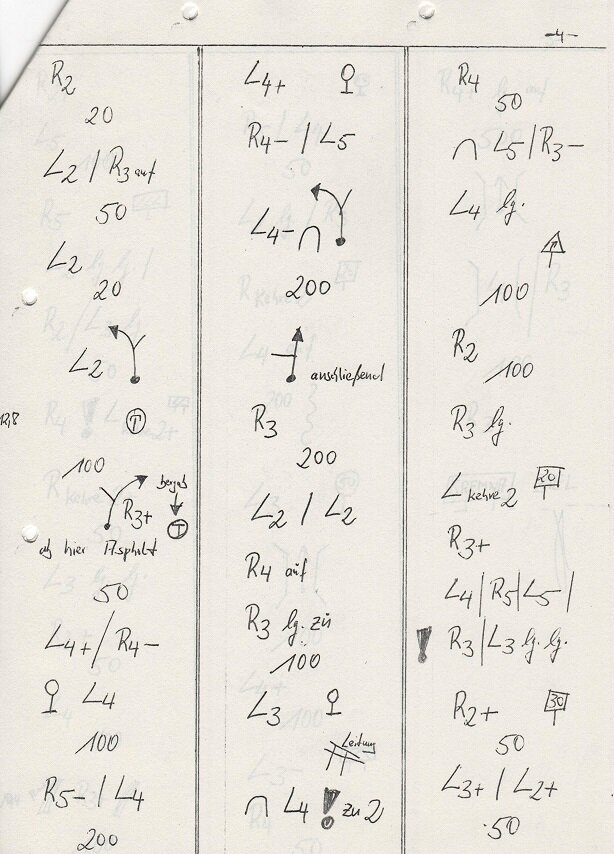 -4-
R2
20
L2 / R3 auf
50
L2
20
L2
T
100
R3+ bergab
T
ab hier Asphalt
50
L4+ / R4-
L4
100
R5- / L4
200
L4+
R4- / L5
L4-
200
anschließend
R3
200
L2 / L2
R4 auf
R3 lg. zu
100
L3
Leitung
L4 ! zu 2
R4
50
L5 / R3-
L4 lg.
100
R2
100
R3 lg.
L kehre 2 20
R3+
L4 / R5 / L5 /
! R3 / L3 lg. lg.
R2+ 30
50
L3+ / L2+
50